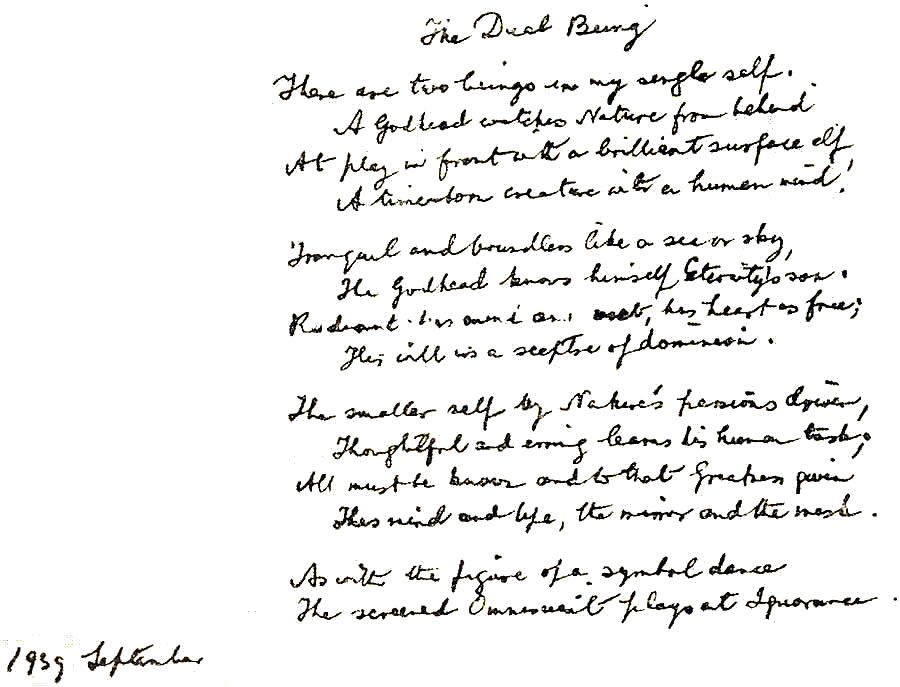 The Dual Being
There are two beings in my single self.
A Godhead watches Nature from behind
At play in front with a brilliant surface elf,
A timeborn creature with a human mind.
Tranquil and boundless like a sea or sky,
The Godhead knows himself Eternity's son.
Radiant his mind and vast, his heart as free;
His will is a sceptre of dominion.
The smaller self by Nature's passions driven,
Thoughtful and erring learns his human task;
All must be known and to that Greatness given
His mind and life, the mirror and the mask.
As with the figure of a symbol dance
The screened Omniscient plays at Ignorance.
1939 September